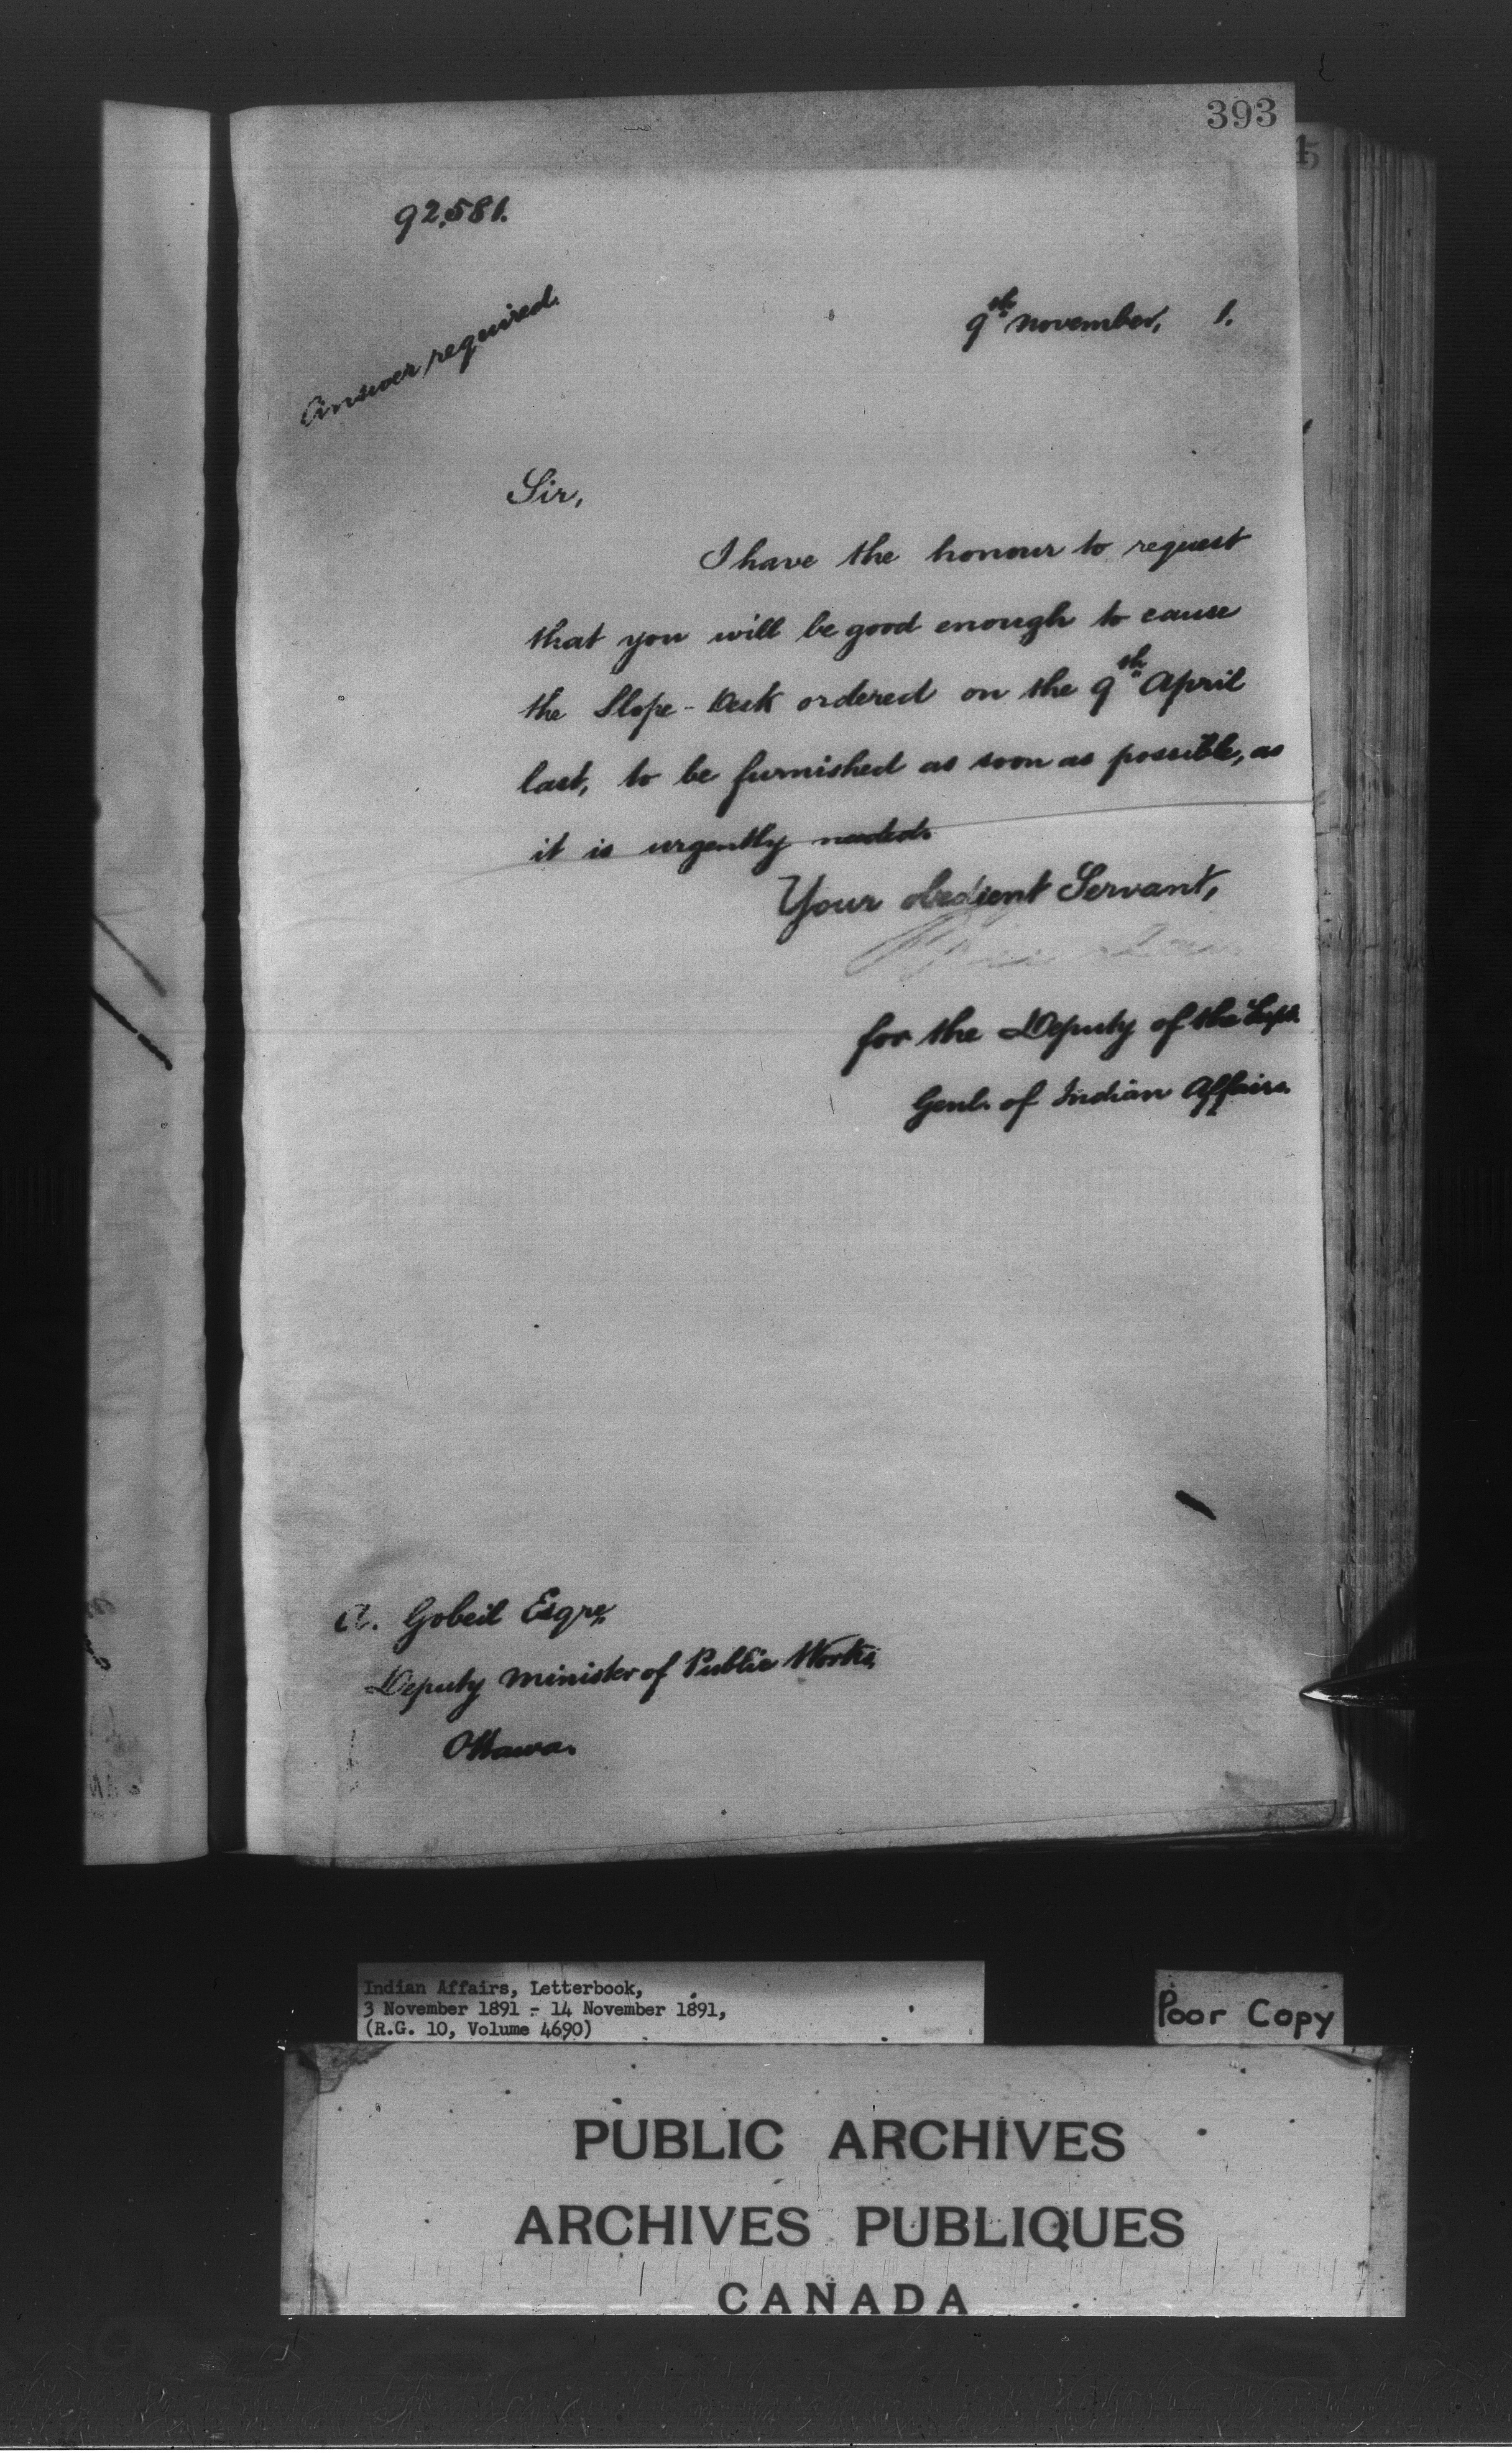 393
92,581.
Answer required.
9th November, 1.
Sir,
I have the honour to request
that you will be good enough to cause
the Slope-Desk ordered on the 9th April
last, to be furnished as soon as possible, as
it is urgently needed.
Your obedient Servant,
for the Deputy of the Supt.
Genl. of Indian Affairs.
A. Gobeil Esqre,
Deputy Minister of Public Works,
Ottawa.
Indian Affairs, Letterbook,
3 November 1891 - 14 November 1891,
(R.G. 10, Volume 4690)
Poor Copy
PUBLIC ARCHIVES
ARCHIVES PUBLIQUES
CANADA